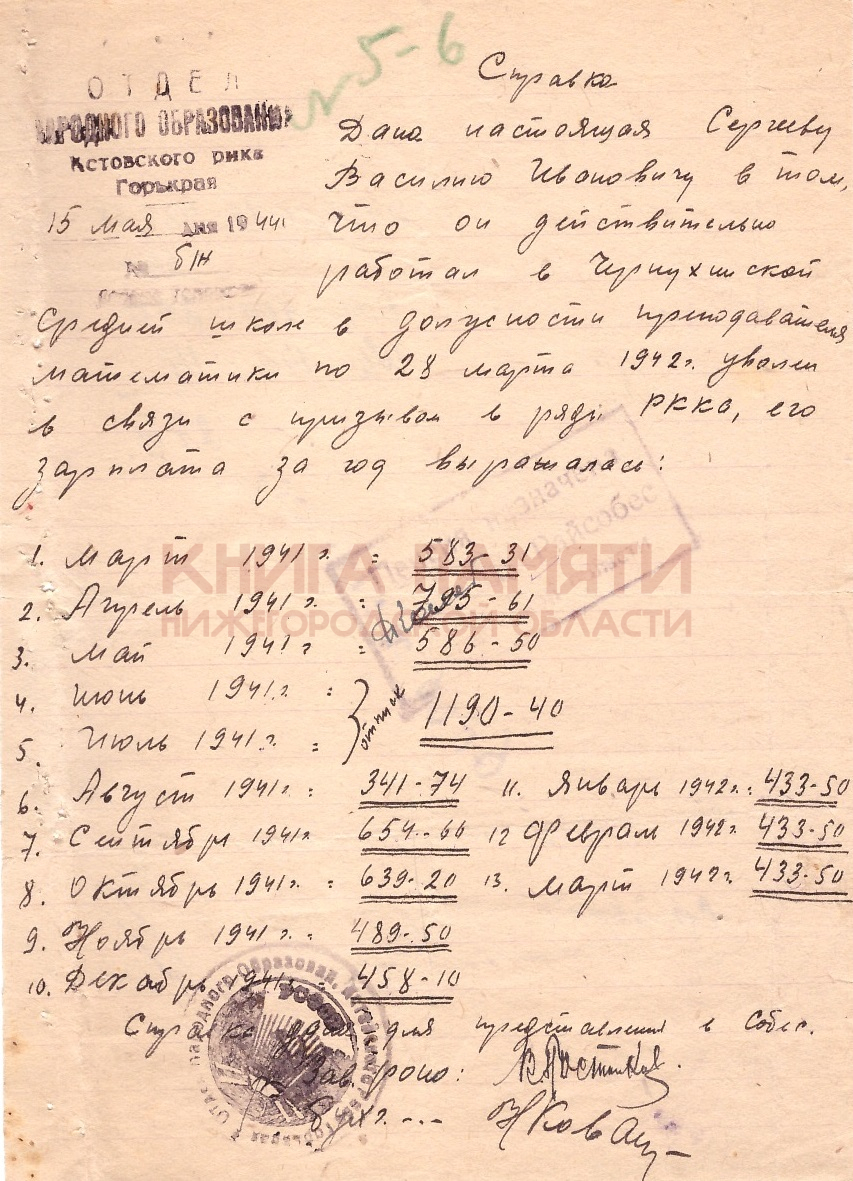 № 5-6
ОТДЕЛ
НАРОДНОГО ОБРАЗОВАНИЯ
Кстовского рика
Горькрая
15 мая дня 1944
№ б/н
Справка
Дана настоящая Сергееву
Василию Ивановичу в том,
что он действительно
работал в Чернухинской
Средней школе в должности преподавателя
математики по 28 марта 1942г. уволен
в связи с призывом в ряды РККА, его
зарплата за год выражалась:
1. Март 1941г. = 583-31
2. Апрель 1941г. = 795-61
3. Май 1941г = 586-50
4. Июнь 1941г. =
5. Июль 1941г. =
отпуск 1190-40
6. Август 1941г. = 341-74
7. Сентябрь 1941г 654-60
8. Октябрь 1941г. = 639-20
9. Ноябрь 1941г. = 489-50
10. Декабрь 1941г. = 458-10
11. Январь 1942г. = 433-50
12 Февраль 1942г. 433-50
13. Март 1942г. 433-50
Справка дана для представления в Собес.
Зав. роно:
Бух.
назначена
Райсобес
КНИГА ПАМЯТИ
НИЖЕГОРОДСКОЙ ОБЛАСТИ